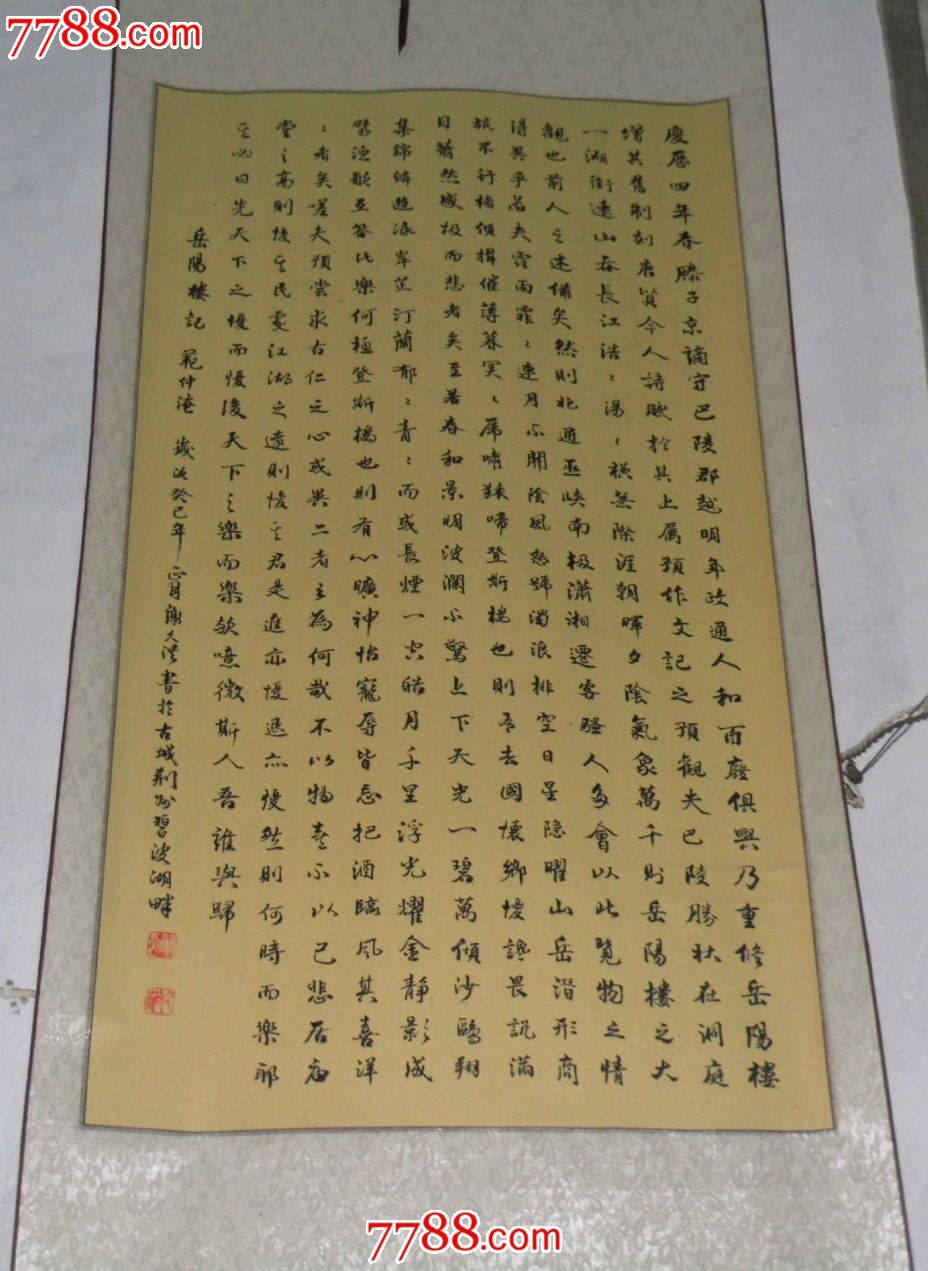 7788.com
慶歷四年春滕子京謫守巴陵郡越明年政通人和百廢俱興乃重修岳陽樓
增其舊制刻唐賢今人詩賦於其上属預作文記之預觀夫巴陵勝狀在洞庭
一湖銜遠山吞長江浩〻湯〻橫無際涯朝暉夕陰氣象萬千則岳陽樓之大
觀也前人之述備矣然則北通巫峽南極瀟湘遷客騷人多會以此覽物之情
得異乎若夫霪雨霏〻連月不開陰風怒號濁浪排空日星隐曜山岳潛形商
旅不行檣傾楫催薄暮冥〻虎嘯猿啼登斯樓也則有去國懷鄉憂讒畏訊滿
目蕭然感极而悲者矣至若春和景明波瀾不驚上下天光一碧萬傾沙鷗翔
集錦鱗遊泳岸芷汀蘭郁〻青〻而或長煙一空皓月千里浮光耀金靜影成
璧漁歌互答比樂何極登斯樓也則有心曠神怡寵辱皆忘把酒臨风其喜洋
〻者矣嗟夫預尝求古仁之心或異二者之為何哉不以物喜不以己悲居庙
堂之高則憂其民處江湖之遠則憂其君是進亦憂退亦憂然則何時而樂耶
其必曰先天下之憂而憂後天下之樂而樂欤噫微斯人吾誰與歸
岳陽樓記 范仲淹 歲次癸巳年正月謝久洪書於古城荆州碧波湖畔
7788.com
7788.com